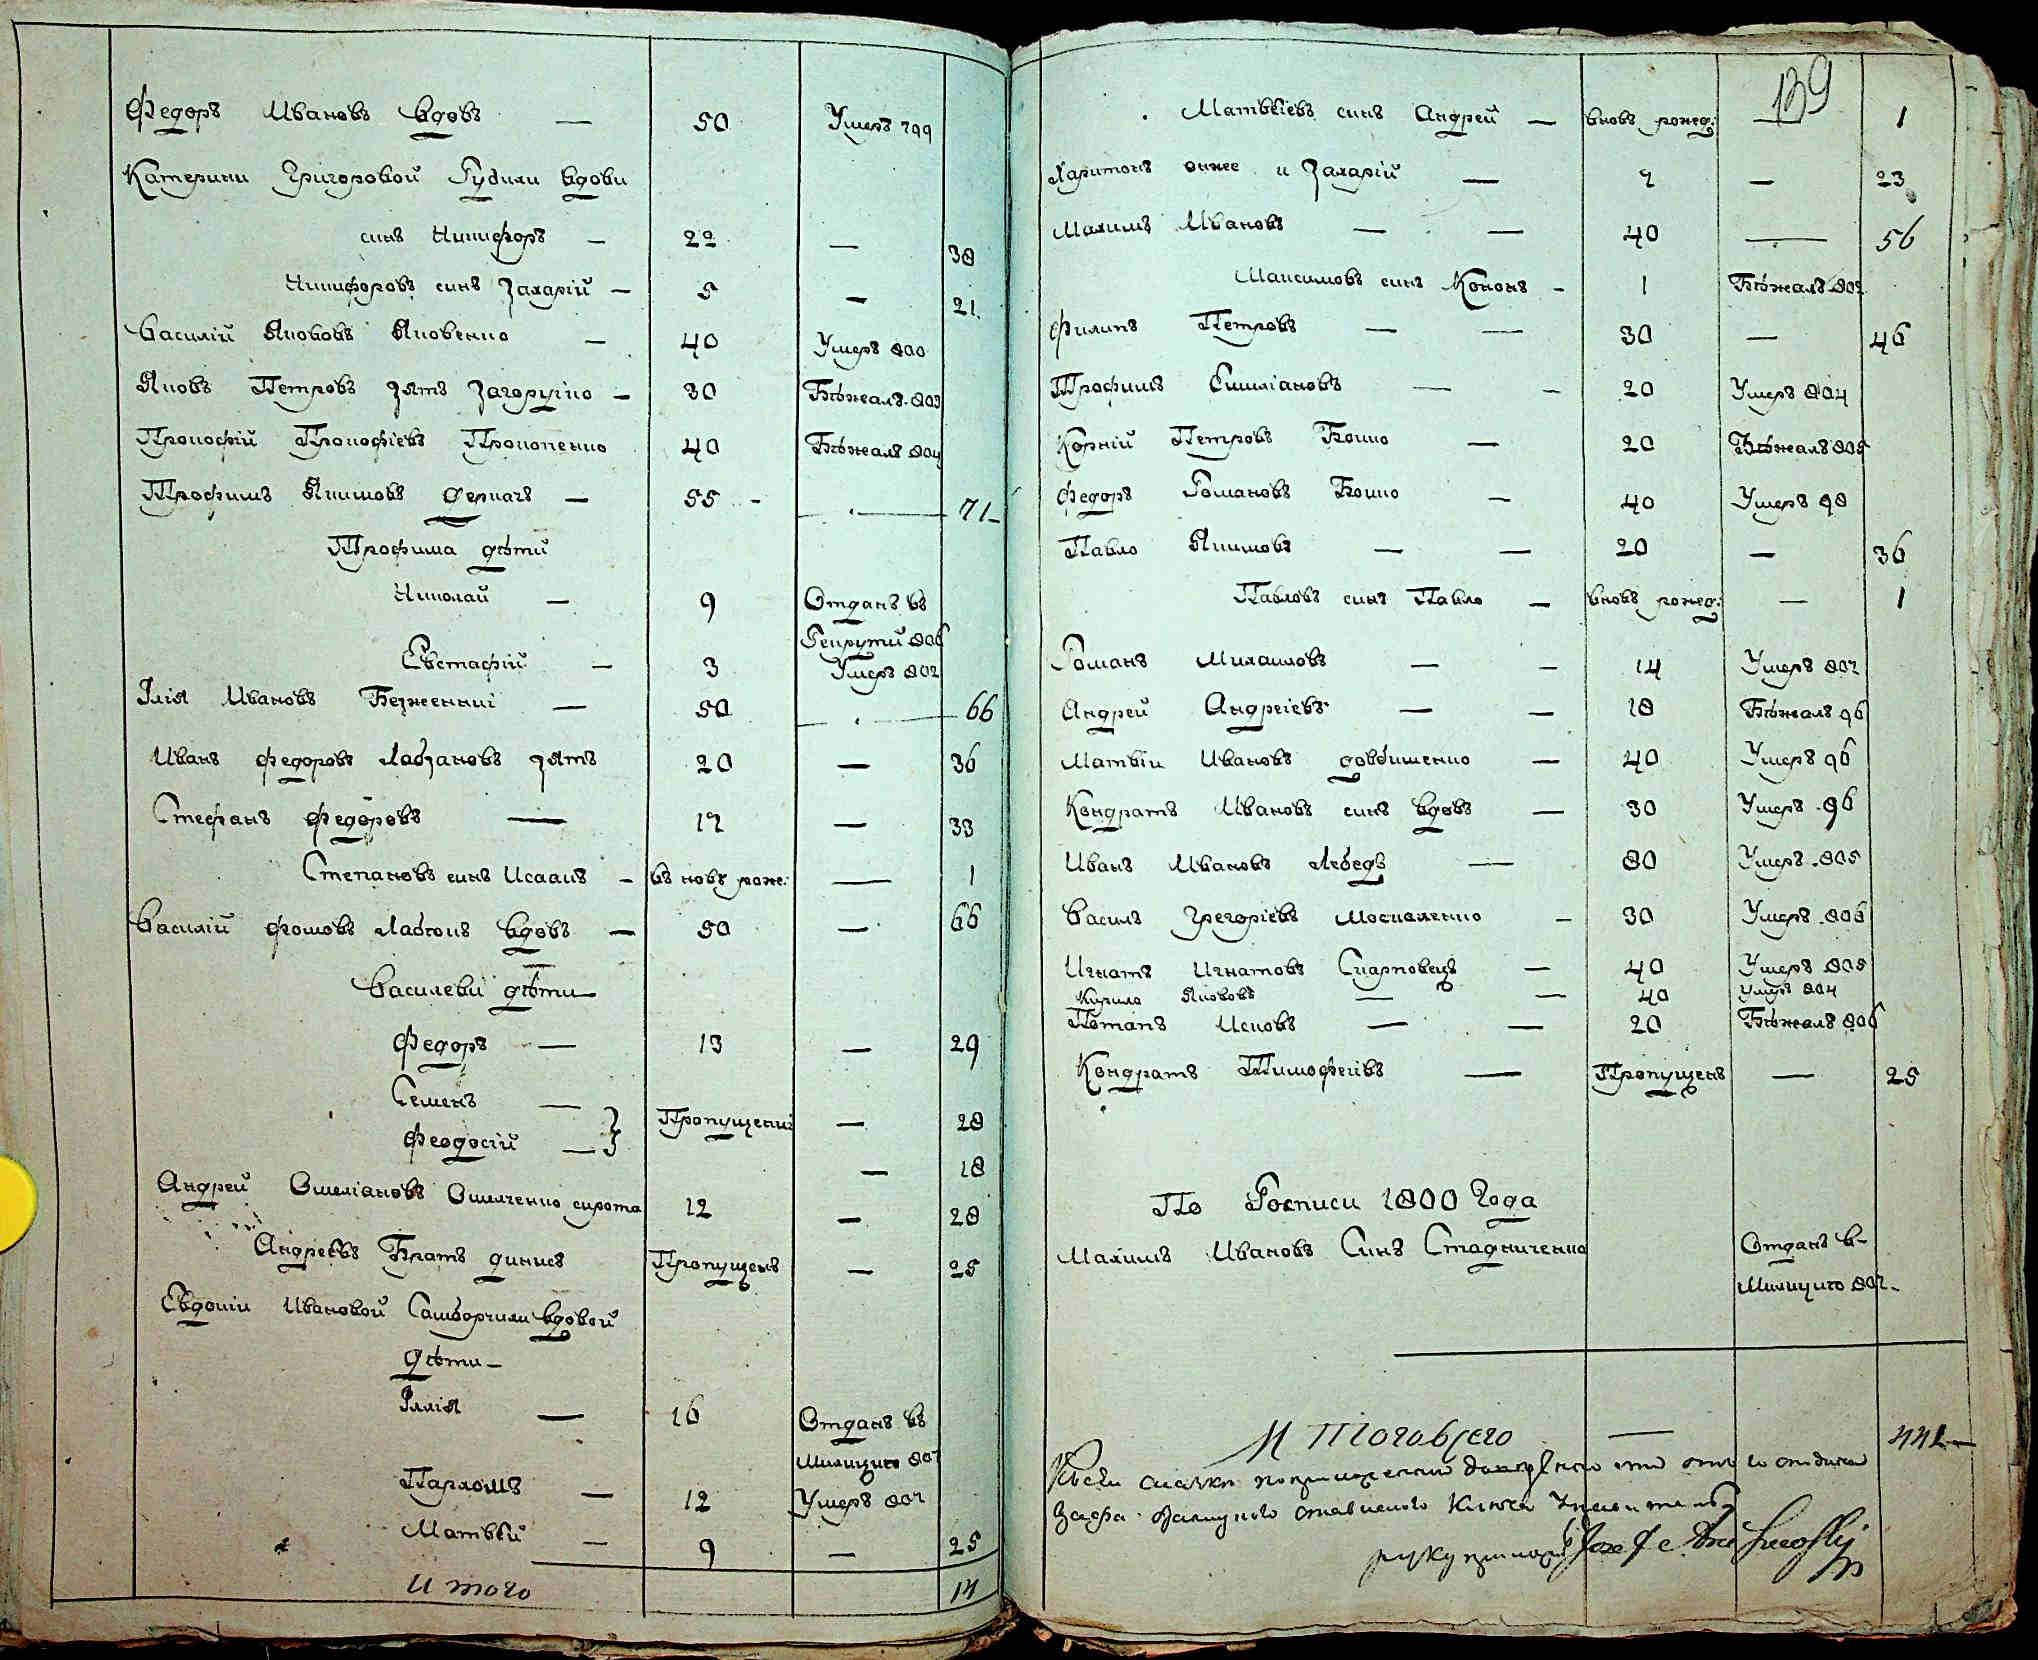 Федоръ Ивановъ вдовъ — 50 Умеръ 799
Катерини Григоровой Рудили вдови
синъ Никифоръ — 22 — 38
Никифоровъ синъ Захарій — 5 — 21
Василій Якововъ Яковенко — 40 Умеръ 800
Яковъ Петровъ зять Загоруйко — 30 Бѣжалъ 803
Прокофій Прокофіевъ Прокопенко 40 Бѣжалъ 804
Трофимъ Якимовъ Деркачъ — 55 — 71
Трофима дѣти
Николай — 9 Отданъ въ
Рекрути 806
Евстафій — 3 Умеръ 802
Илія Ивановъ — 50 — 66
Иванъ Федоровъ Лабзановъ зять 20 — 36
Стефанъ Федоровъ — 17 — 33
Степановъ синъ Исаакъ — въ новъ рожд: — 1
Василій Фомовъ вдовъ — 50 — 66
Василеви дѣти
Федоръ — 13 — 29
Семенъ — Пропущени — 28
Феодосій — — 18
Андрей Омеліановъ Омелченко сирота 12 — 28
Андреевъ Братъ Динисъ Пропущенъ — 25
Евдокіи Ивановой вдовой
Дѣти —
Иллія — 16 Отданъ въ
Милицию 807
Пархомъ — 12 Умеръ 807
Матвѣй — 9 — 25
Итого 14
139
Матвѣіевъ синъ Андрей — вновь рожед: — 1
Харитонъ онже и Захарій — 7 — 23
Махимъ Ивановъ — — 40 — 56
Максимовъ синъ Кононъ — 1 Бѣжалъ 802
Филипъ Петровъ — — 30 — 46
Трофимъ Емиліановъ — — 20 Умеръ 804
Корній Петровъ Бойко — 20 Бѣжалъ 805
Федоръ Романовъ Бойко — 40 Умеръ 98
Павло Якимовъ — — 20 — 36
Павловъ синъ Павло — вновь рожед: — 1
Романъ Михаиловъ — — 14 Умеръ 807
Андрей Андреіевъ — — 18 Бѣжалъ 96
Матвѣи Ивановъ Довбишенко — 40 Умеръ 96
Кондратъ Ивановъ синъ вдовъ — 30 Умеръ 96
Иванъ Ивановъ Лебедъ — 80 Умеръ 805
Василь Грегоріевъ Москаленко — 30 Умеръ 806
Игнатъ Игнатовъ — 40 Умеръ 805
Кирило Якововъ — — 40 Умеръ 804
Потапъ Исковъ — — 20 Бѣжалъ 806
Кондратъ Тимофеівъ — Пропущенъ — 25
По Росписи 1800 Года
Махимъ Ивановъ Синъ Стадниченко Отданъ в-
Милицию 807 -
И Того всего — 442 —
руку приложилъ